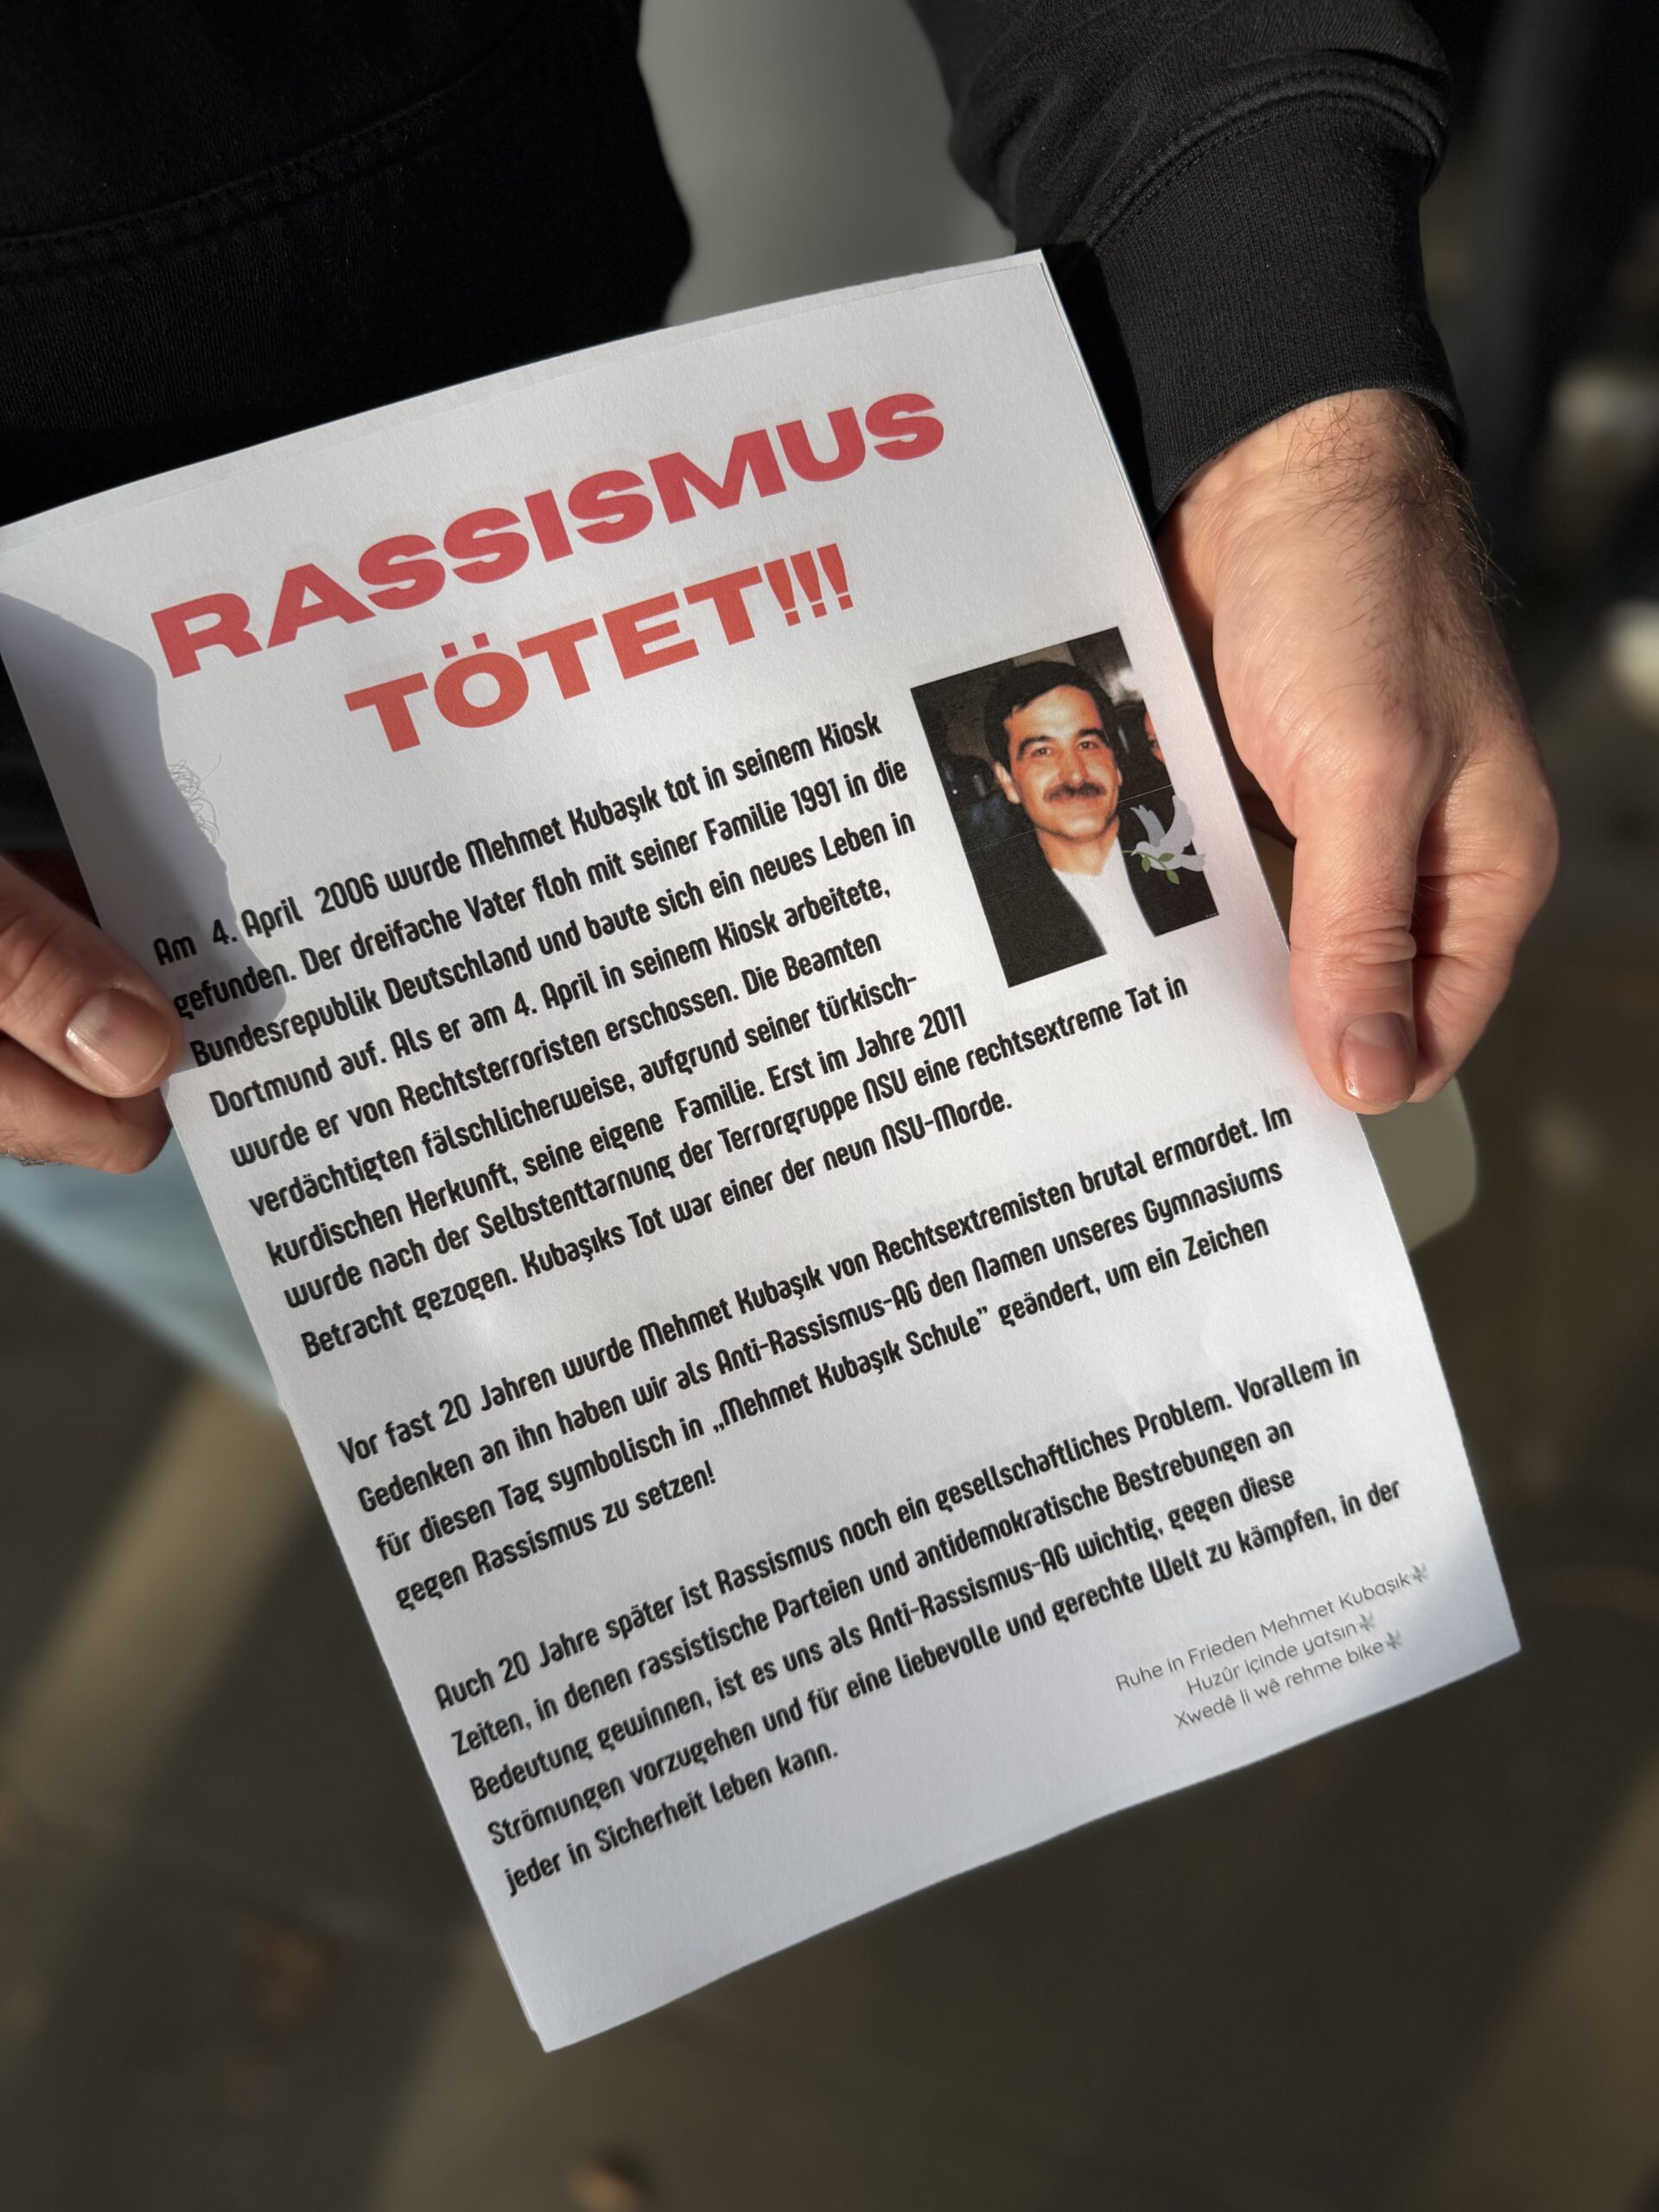 RASSISMUS
TÖTET!!!
Am 4. April 2006 wurde Mehmet Kubaşık tot in seinem Kiosk
gefunden. Der dreifache Vater floh mit seiner Familie 1991 in die
Bundesrepublik Deutschland und baute sich ein neues Leben in
Dortmund auf. Als er am 4. April in seinem Kiosk arbeitete,
wurde er von Rechtsterroristen erschossen. Die Beamten
verdächtigten fälschlicherweise, aufgrund seiner türkisch-
kurdischen Herkunft, seine eigene Familie. Erst im Jahre 2011
wurde nach der Selbstenttarnung der Terrorgruppe NSU eine rechtsextreme Tat in
Betracht gezogen. Kubaşıks Tot war einer der neun NSU-Morde.
Vor fast 20 Jahren wurde Mehmet Kubaşık von Rechtsextremisten brutal ermordet. Im
Gedenken an ihn haben wir als Anti-Rassismus-AG den Namen unseres Gymnasiums
für diesen Tag symbolisch in „Mehmet Kubaşık Schule” geändert, um ein Zeichen
gegen Rassismus zu setzen!
Auch 20 Jahre später ist Rassismus noch ein gesellschaftliches Problem. Vorallem in
Zeiten, in denen rassistische Parteien und antidemokratische Bestrebungen an
Bedeutung gewinnen, ist es uns als Anti-Rassismus-AG wichtig, gegen diese
Strömungen vorzugehen und für eine liebevolle und gerechte Welt zu kämpfen, in der
jeder in Sicherheit leben kann.
Ruhe in Frieden Mehmet Kubaşık
Huzûr içinde yatsın
Xwedê li wê rehme bike